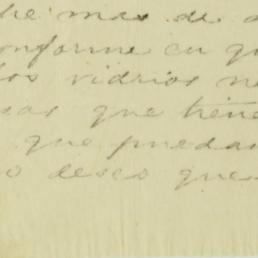 che mas de a
conforme en qu
los vidrios ne
sas que tiene
que puedan
o deseo que